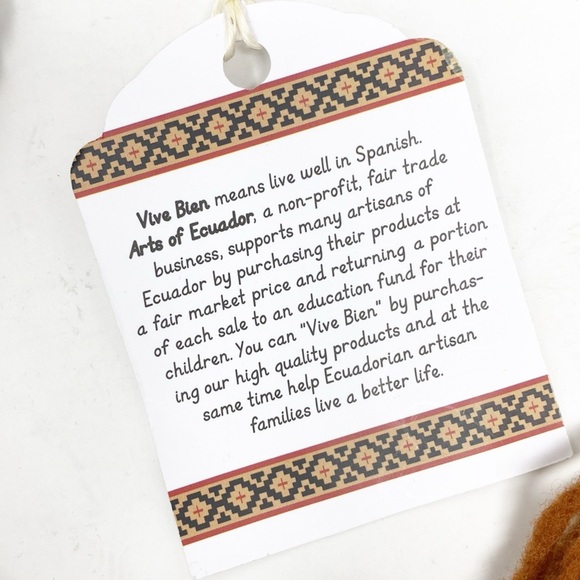 Vive Bien means live well in Spanish.
Arts of Ecuador, a non-profit, fair trade
business, supports many artisans of
Ecuador by purchasing their products at
a fair market price and returning a portion
of each sale to an education fund for their
children. You can "Vive Bien" by purchas-
ing our high quality products and at the
same time help Ecuadorian artisan
families live a better life.